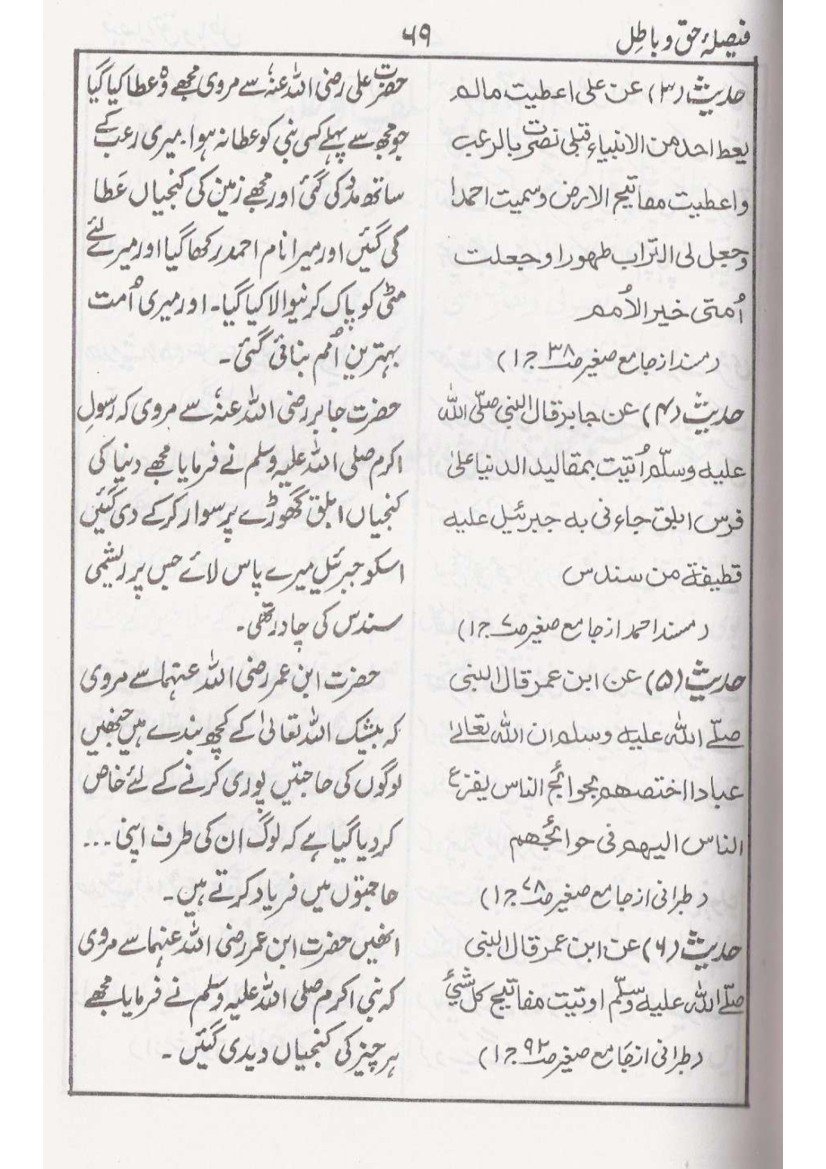 فیصلۂ حق و باطل
۶۹
حدیث (۳) عن علی اعطیت مالم
یعط احد من الانبیاء قبلی نصرت بالرعب
واعطیت مفاتیح الارض وسمیت احمدا
وجعل لی التراب طهورا وجعلت
اُمتی خیر الاُمم
(مسند از جامع صغیر ص۳۸ ج۱)
حدیث (۴) عن جابر قال النبی صلّی اللہ
علیہ وسلّم اُتیت بمقالید الدنیا علیٰ
فرس ابلق جاءنی به جبرئیل علیه
قطیفة من سندس
(مسند احمد از جامع صغیر ص۷ ج۱)
حدیث (۵) عن ابن عمر قال النبی
صلّے اللہ علیہ وسلم ان اللہ تعالےٰ
عبادا اختصهم بحوائج الناس یفزع
الناس الیهم فی حوائجهم
(طبرانی از جامع صغیر ص۷۸ ج۱)
حدیث (۶) عن ابن عمر قال النبی
صلّے اللہ علیہ وسلّم اوتیت مفاتیح کل شیٔ
(طبرانی از جامع صغیر ص۹۲ ج۱)
حضرت علی رضی اللہ عنہٗ سے مروی مجھے وُہ عطا کیا گیا
جو مجھ سے پہلے کسی نبی کو عطا نہ ہوا۔ میری رعب کے
ساتھ مدد کی گئی اور مجھے زمین کی کنجیاں عَطا
کی گئیں اور میرا نام احمد رکھا گیا اور میرے لئے
مٹی کو پاک کرنیوالا کیا گیا۔ اور میری اُمت
بہترین اُمم بنائی گئی۔
حضرت جابر رضی اللہ عنہٗ سے مروی کہ رسولِ
اکرم صلی اللہ علیہ وسلم نے فرمایا مجھے دنیا کی
کنجیاں ابلق گھوڑے پر سوار کرکے دی گئیں
اسکو جبرئیل میرے پاس لائے جس پر ریشمی
سندس کی چادر تھی۔
حضرت ابن عمر رضی اللہ عنہما سے مروی
کہ بیشک اللہ تعالیٰ کے کچھ بندے ہیں جنھیں
لوگوں کی حاجتیں پوری کرنے کے لئے خاص
کر دیا گیا ہے کہ لوگ ان کی طرف اپنی ...
حاجتوں میں فریاد کرتے ہیں۔
انھیں حضرت ابن عمر رضی اللہ عنہما سے مروی
کہ نبی اکرم صلی اللہ علیہ وسلم نے فرمایا مجھے
ہر چیز کی کنجیاں دیدی گئیں۔